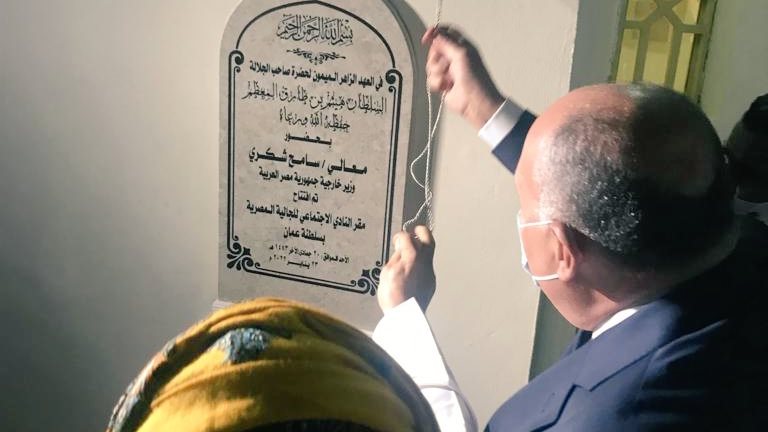 بسم الله الرحمن الرحيم
في العهد الزاهر الميمون لحضرة صاحب الجلالة
السلطان هيثم بن طارق المعظم
حفظه الله ورعاه
بحضور
معالي / سامح شكري
وزير خارجية جمهورية مصر العربية
تم افتتاح
مقر النادي الاجتماعي للجالية المصرية
بسلطنة عمان
الأحد الموافق ٢٠ جمادى الآخر ١٤٤٣ هـ
٢٣ يناير ٢٠٢٢ م